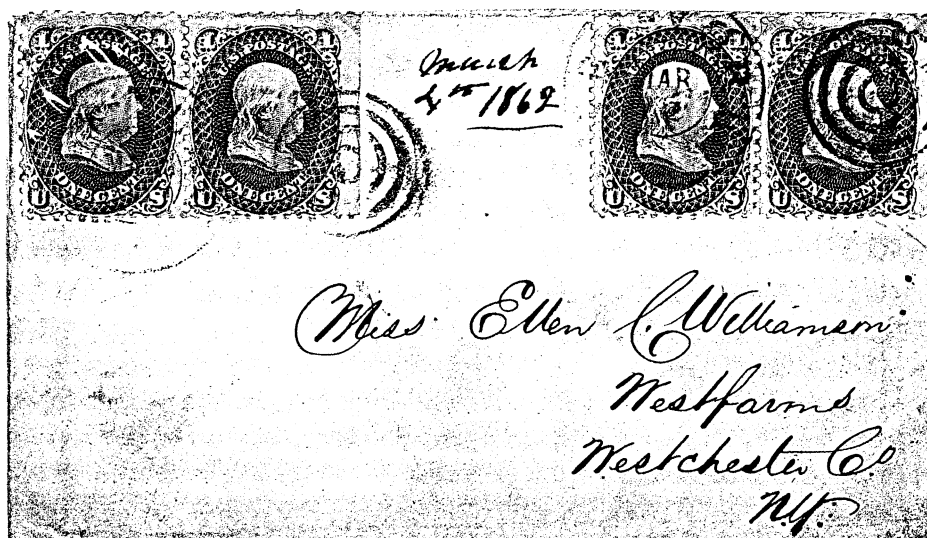 U.S. POSTAGE
1 1
ONE CENT
U S
U.S. POSTAGE
1 1
ONE CENT
U S
March
4th 1862
U.S. POSTAGE
1 1
MAR
ONE CENT
U S
1 1
ONE CENT
U S
Miss. Ellen C. Williamson.
Westfarms
Westchester Co
N.Y.